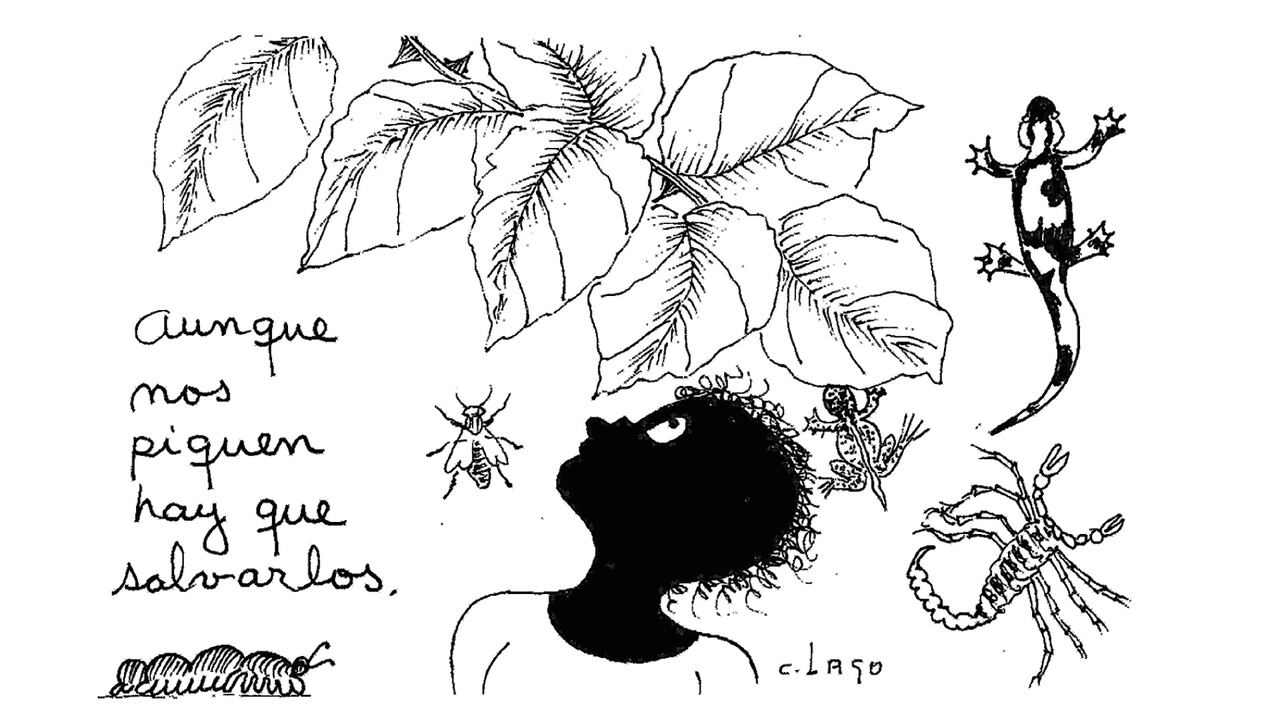 aunque
nos
piquen
hay que
salvarlos.
C. LAGO